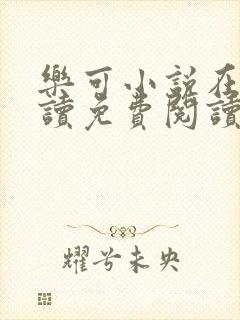 樂可小說在
讀免費閱讀
耀兮未央